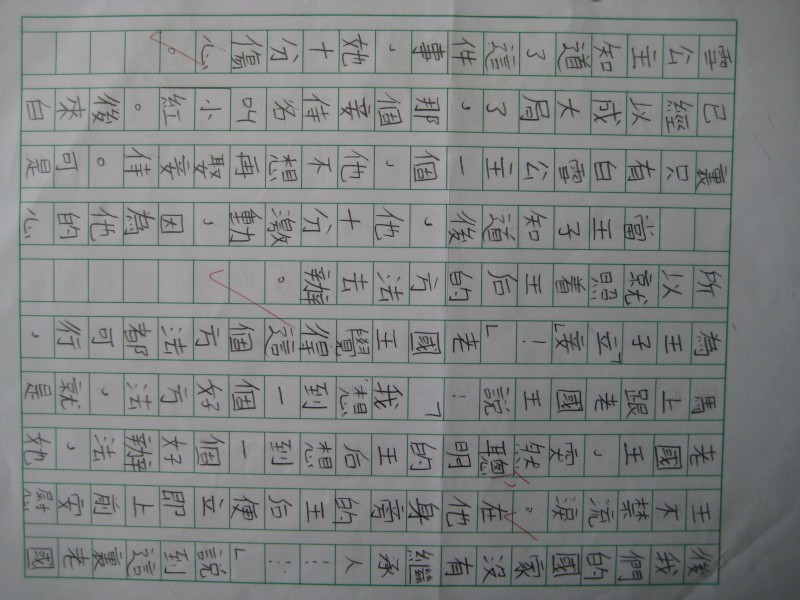 後我們的國家沒有繼承人……」說到這裏老國
王不禁流淚。在他身旁的王后便立即上前安慰
老國王，突然聰明的王后想到一個好辦法，她
馬上跟老國王說：「我想到一個好方法，就是
為王子「立妾」！」老國王覺得這個方法都可行，
所以就照着王后的方法去辦。
當王子知道後，他十分激動，因為他的心
裏只有白雪公主一個，他不想再娶妾侍。可是
已經以成大局了，那個妾侍名叫小紅。後來白
雪公主知道了這件事，她十分傷心。